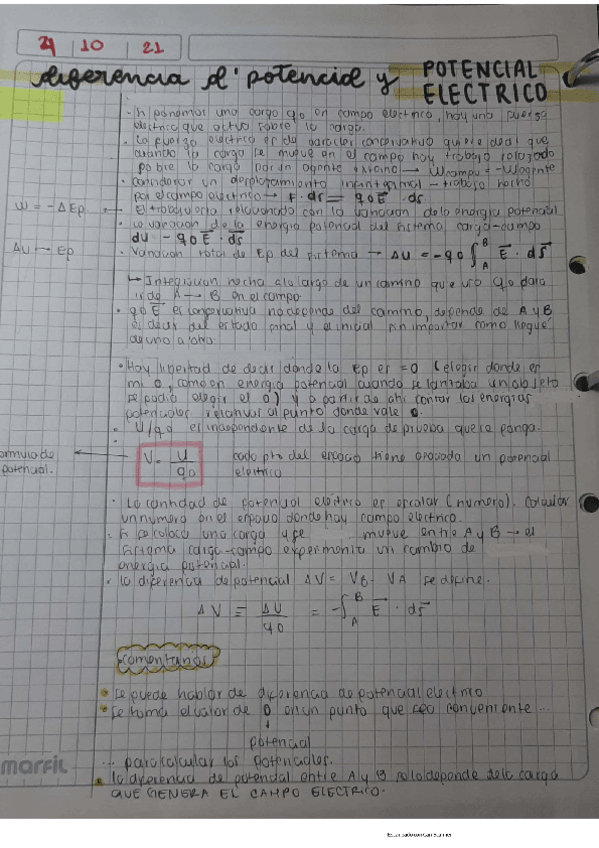 21 | 10 | 21
diferencia d' potencial y POTENCIAL ELECTRICO
- si ponemos una carga q0 en campo electrico, hay una fuerza
electrica que actua sobre la carga.
• La fuerza electrica es de caracter conservativo quiere decir que
cuando la carga se mueve en el campo hay trabajo realizado
sobre la carga por un agente externo → Wcampo = -Wagente
• considerar un desplazamiento infinitesimal - trabajo hecho
por el campo electrico → F · ds = q0 E · ds
W = -ΔEp ← El trabajo esta relacionado con la variacion de la energia potencial
• la variacion de la energia potencial del sistema carga-campo
dU = -q0 E · ds
ΔU → Ep
• Variacion total de Ep del sistema → ΔU = -q0 ∫ₐᴮ E · ds
↳ Integracion hecha a lo largo de un camino que uso q0 para
ir de A → B en el campo
• q0 E es conservativa no depende del camino, depende de A y B
es decir del estado final y el inicial sin importar como llegué
de uno a otro.
• Hay libertad de decir donde la Ep es = 0 (elegir donde es
mi 0, como en energia potencial cuando se lanzaba un objeto
se podia elegir el 0) y a partir de ahi contar las energias
potenciales relativas al punto donde vale 0.
• U/q0 es independente de la carga de prueba que se ponga.
formula de potencial. ← V = U / q0 cada pto del espacio tiene asociada un potencial
electrico
• La cantidad de potencial electrico es escalar (numero). Calcular
un numero en el espacio donde hay campo electrico.
• Si se coloca una carga y se mueve entre A y B → el
sistema carga-campo experimenta un cambio de
energia potencial.
• la diferencia de potencial ΔV = VB - VA se define.
ΔV ≡ ΔU / q0 = -∫ₐᴮ E · ds
comentarios
• se puede hablar de diferencia de potencial electrico
• Se toma el valor de 0 en un punto que sea conveniente ...
↓
potencial
... para calcular los potenciales.
marfil
• la diferencia de potencial entre A y B solo depende de la carga
QUE GENERA EL CAMPO ELECTRICO.
Escaneado con CamScanner